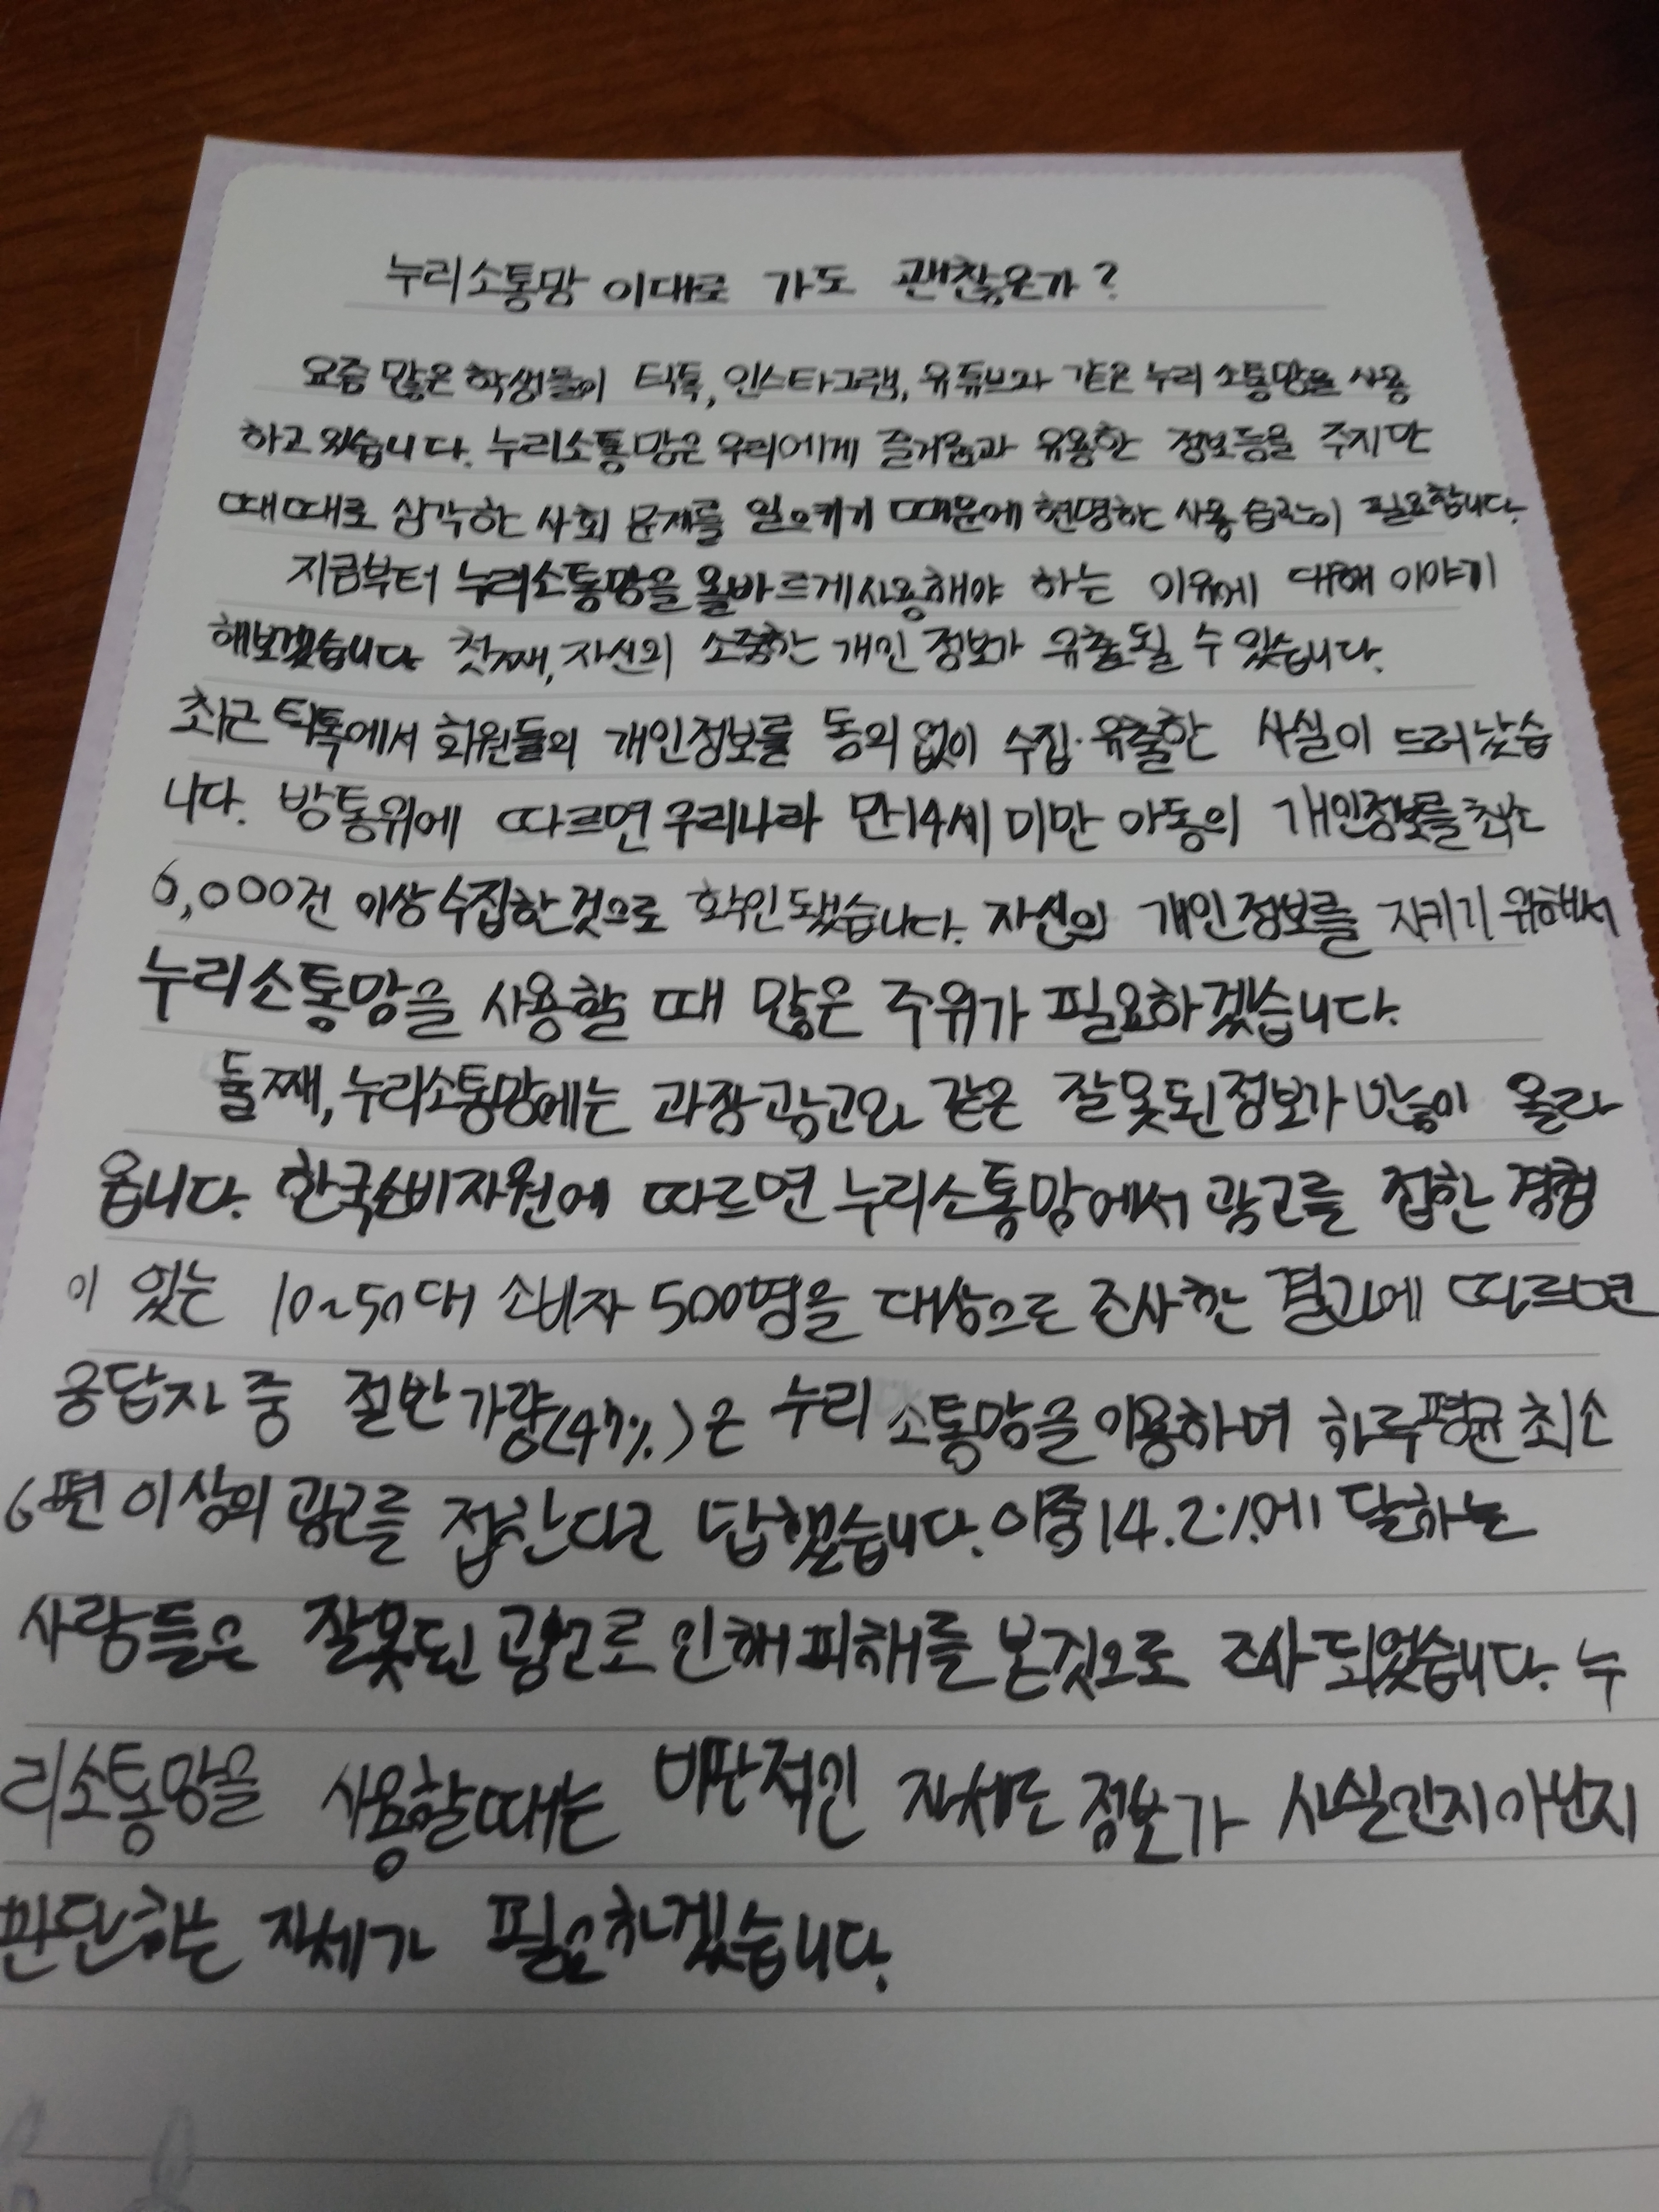 누리소통망 이대로 가도 괜찮은가?
요즘 많은 학생들이 틱톡, 인스타그램, 유튜브와 같은 누리 소통망을 사용
하고 있습니다. 누리소통망은 우리에게 즐거움과 유용한 정보등을 주지만
때때로 심각한 사회 문제를 일으키기 때문에 현명한 사용 습관이 필요합니다.
지금부터 누리소통망을 올바르게 사용해야 하는 이유에 대해 이야기
해보겠습니다 첫째, 자신의 소중한 개인 정보가 유출될 수 있습니다.
최근 틱톡에서 회원들의 개인정보를 동의 없이 수집·유출한 사실이 드러났습
니다. 방통위에 따르면 우리나라 만14세 미만 아동의 개인정보를 최소
6,000건 이상 수집한 것으로 확인됐습니다. 자신의 개인정보를 지키기 위해서
누리소통망을 사용할 때 많은 주위가 필요하겠습니다.
둘째, 누리소통망에는 과장광고와 같은 잘못된 정보가 많이 올라
옵니다. 한국소비자원에 따르면 누리소통망에서 광고를 접한 경험
이 있는 10~50대 소비자 500명을 대상으로 조사한 결과에 따르면
응답자 중 절반 가량(47%)은 누리 소통망을 이용하며 하루 평균 최소
6편 이상의 광고를 접한다고 답했습니다. 이중 14.2%에 달하는
사람들은 잘못된 광고로 인해 피해를 본것으로 조사 되었습니다. 누
리소통망을 사용할때는 비판적인 자세로 정보가 사실인지 아닌지
판단하는 자세가 필요하겠습니다.